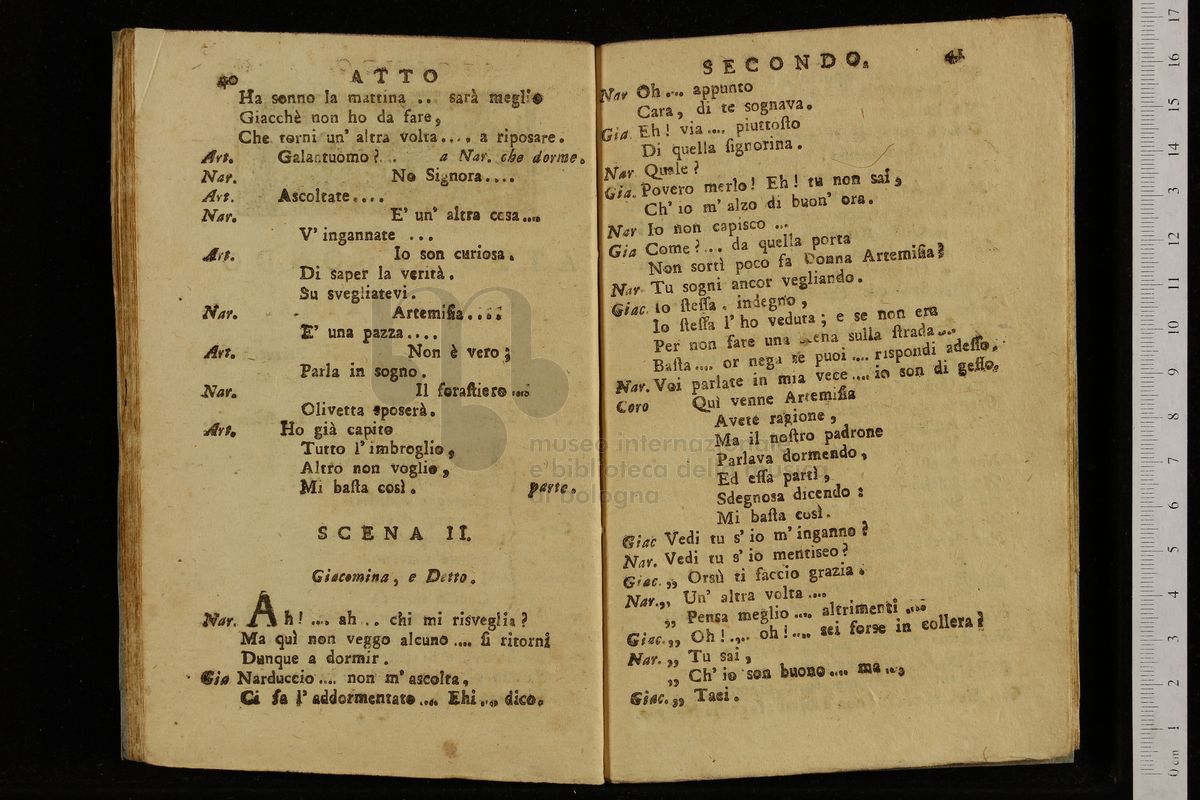 40 ATTO
Ha sonno la mattina .. sarà meglio
Giacchè non ho da fare,
Che torni un' altra volta.... a riposare.
Art. Galantuomo? .. a Nar. che dorme.
Nar. No Signora....
Art. Ascoltate....
Nar. E' un' altra cosa....
V' ingannate ...
Art. Io son curiosa.
Di saper la verità.
Su svegliatevi.
Nar. Artemiſia....
E' una pazza....
Art. Non è vero;
Parla in sogno.
Nar. Il foraſtiero ....
Olivetta sposerà.
Art. Ho già capito
Tutto l'imbroglio,
Altro non voglio,
Mi baſta così. parte.
SCENA II.
Giacomina, e Detto.
Nar. Ah! .... ah ... chi mi risveglia?
Ma quì non veggo alcuno .... ſi ritorni
Dunque a dormir.
Gia Narduccio .... non m' ascolta,
Ci fa l' addormentato .... Ehi ... dico.
SECONDO. 41
Nar Oh .... appunto
Cara, di te sognava.
Gia. Eh! via .... piuttoſto
Di quella ſignorina.
Nar Quale?
Gia. Povero merlo! Eh! tu non sai,
Ch' io m' alzo di buon' ora.
Nar Io non capisco ...
Gia Come? ... da quella porta
Non sortì poco fa Donna Artemiſia?
Nar Tu sogni ancor vegliando.
Giac. Io ſteſſa, indegno,
Io ſteſſa l' ho veduta; e se non era
Per non fare una scena sulla ſtrada ....
Baſta .... or nega se puoi .... rispondi adeſſo.
Nar. Voi parlate in mia vece .... io son di geſſo.
Coro Quì venne Artemiſia
Avete ragione,
Ma il noſtro padrone
Parlava dormendo,
Ed eſſa partì,
Sdegnosa dicendo:
Mi baſta così.
Giac Vedi tu s' io m' inganno?
Nar. Vedi tu s' io mentisco?
Giac. „ Orsù ti faccio grazia.
Nar. „ Un' altra volta ....
„ Pensa meglio .... altrimenti ....
Giac. „ Oh! .... oh! .... sei forse in collera?
Nar. „ Tu sai,
„ Ch' io son buono .... ma ...
Giac. „ Taci.
museo internazionale
e biblioteca della musica
di bologna
0 cm 1 2 3 4 5 6 7 8 9 10 11 12 13 14 15 16 17